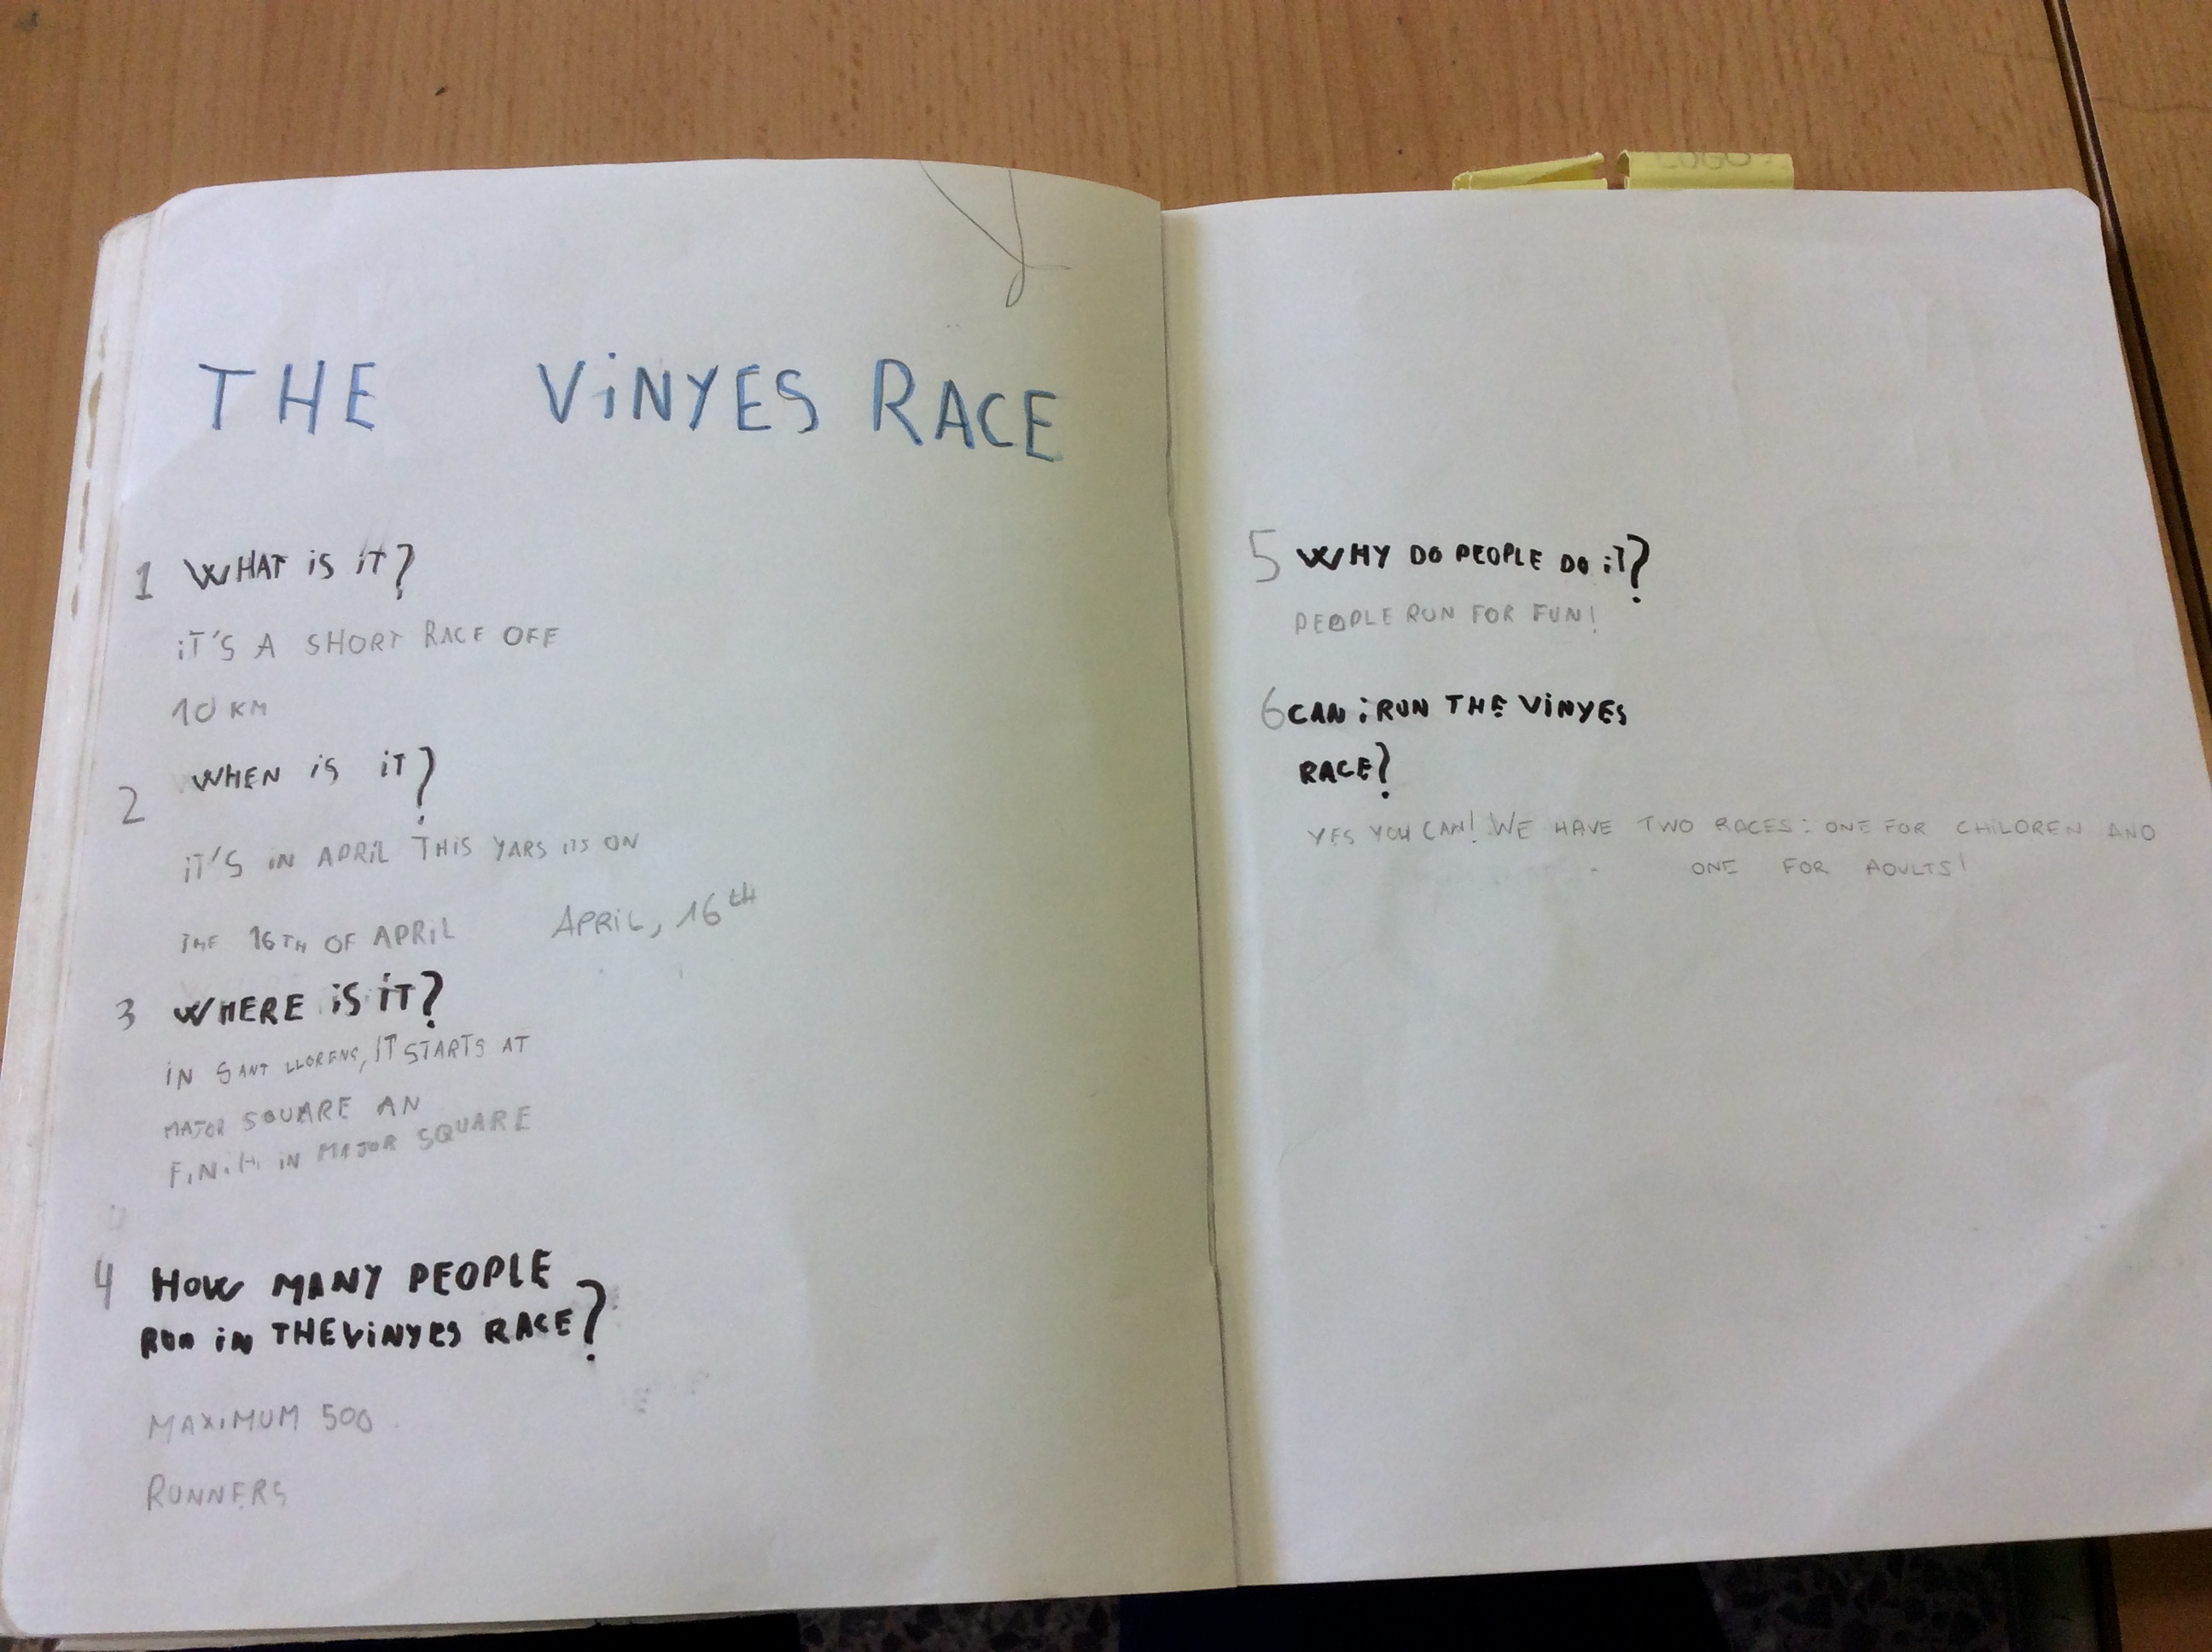 LOGO
THE VINYES RACE
1 WHAT iS iT?
iT'S A SHORT RACE OFF
10 KM
2 WHEN iS iT?
iT'S iN APRiL THiS YARS ITS ON
THE 16TH OF APRiL APRiL, 16th
3 WHERE iS iT?
iN SANT LLORENÇ, IT STARTS AT
MAJOR SQUARE AN
iN MAJOR SQUARE
4 HOW MANY PEOPLE
RUN iN THE ViNYES RACE?
MAXiMUM 500
RUNNERS
5 WHY DO PEOPLE DO iT?
PEOPLE RUN FOR FUN!
6 CAN i RUN THE ViNYES
RACE?
YES YOU CAN! WE HAVE TWO RACES: ONE FOR CHiLDREN AND
ONE FOR ADULTS!